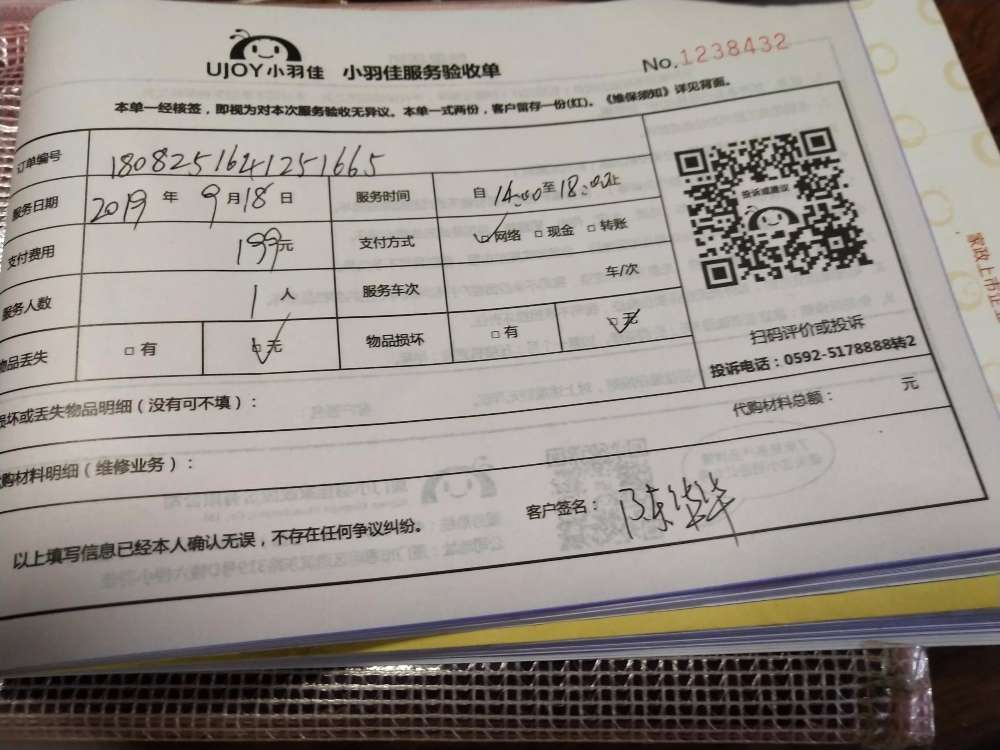 UJOY小羽佳 小羽佳服务验收单
No.1238432
本单一经核签，即视为对本次服务验收无异议。本单一式两份，客户留存一份(红)。《维保须知》详见背面。
订单编号 1808251641251665
服务日期 2019 年 9 月 18 日 服务时间 自 14:00 至 18:00 止
支付费用 199元 支付方式 网络 □ 现金 □ 转账
服务人数 1 人 服务车次 车/次
物品丢失 □ 有 □ 无 物品损坏 □ 有 □ 无
投诉或建议
扫码评价或投诉
投诉电话：0592-5178888转2
损坏或丢失物品明细（没有可不填）：
代购材料总额： 元
代购材料明细（维修业务）：
以上填写信息已经本人确认无误，不存在任何争议纠纷。
客户签名：
家政上市企